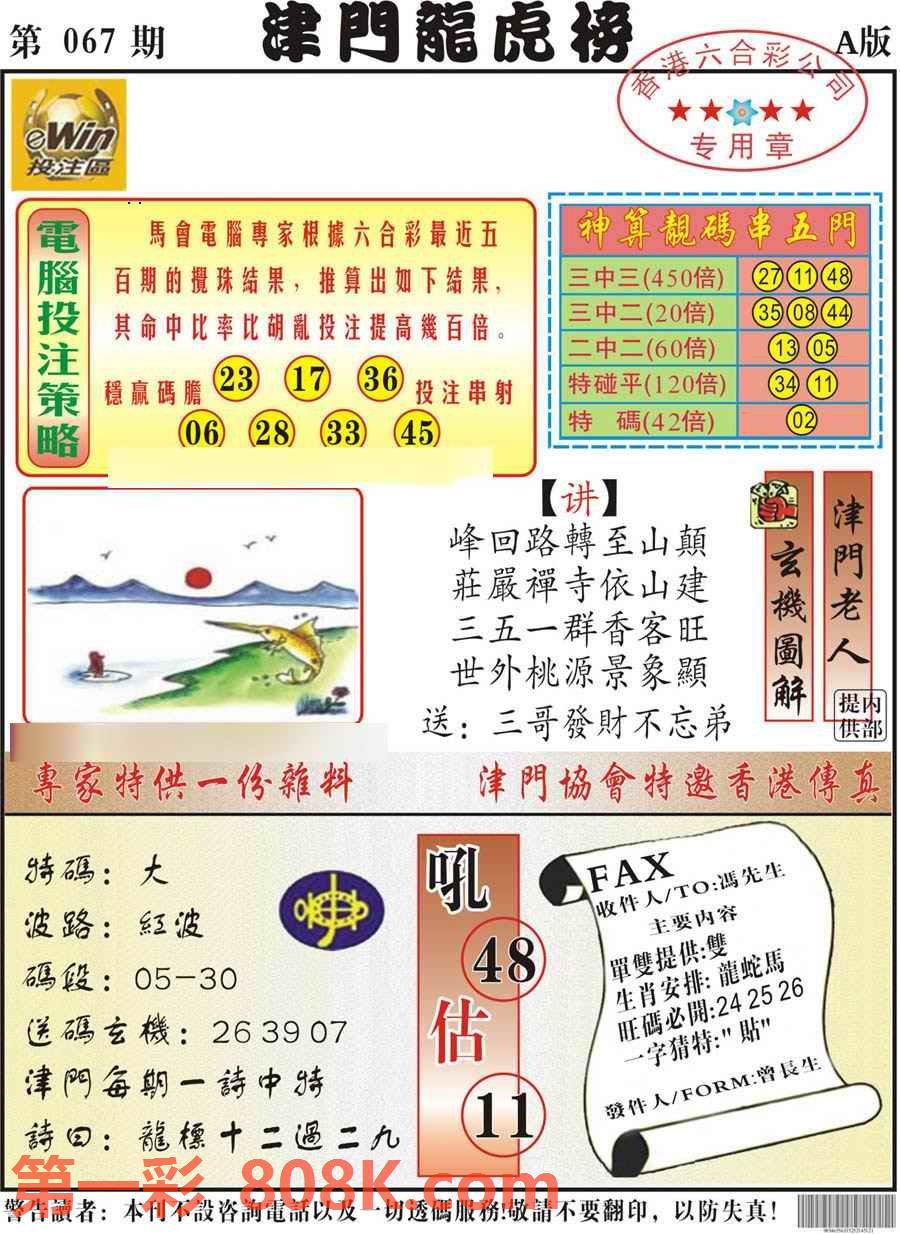 第 067 期
津門龍虎榜
A版
香港六合彩公司
专用章
eWin
投注區
電腦投注策略
馬會電腦專家根據六合彩最近五
百期的攪珠結果，推算出如下結果，
其命中比率比胡亂投注提高幾百倍。
穩贏碼膽 23 17 36 投注串射
06 28 33 45
神算靚碼串五門
三中三(450倍) 27 11 48
三中二(20倍) 35 08 44
二中二(60倍) 13 05
特碰平(120倍) 34 11
特 碼(42倍) 02
【讲】
峰回路轉至山顛
莊嚴禪寺依山建
三五一群香客旺
世外桃源景象顯
送：三哥發財不忘弟
玄機圖解
津門老人
内部提供
專家特供一份雜料
津門協會特邀香港傳真
特碼：大
波路：紅波
碼段：05-30
送碼玄機：26 39 07
津門每期一詩中特
詩曰：龍標十二過二九
吼
48
估
11
FAX
收件人/TO:馮先生
主要内容
單雙提供:雙
生肖安排: 龍蛇馬
旺碼必開:24 25 26
一字猜特:" 貼"
發件人/FORM:曾長生
第一彩 808K.com
警告讀者：本刊不設咨詢電話以及一切透碼服務!敬請不要翻印，以防失真！